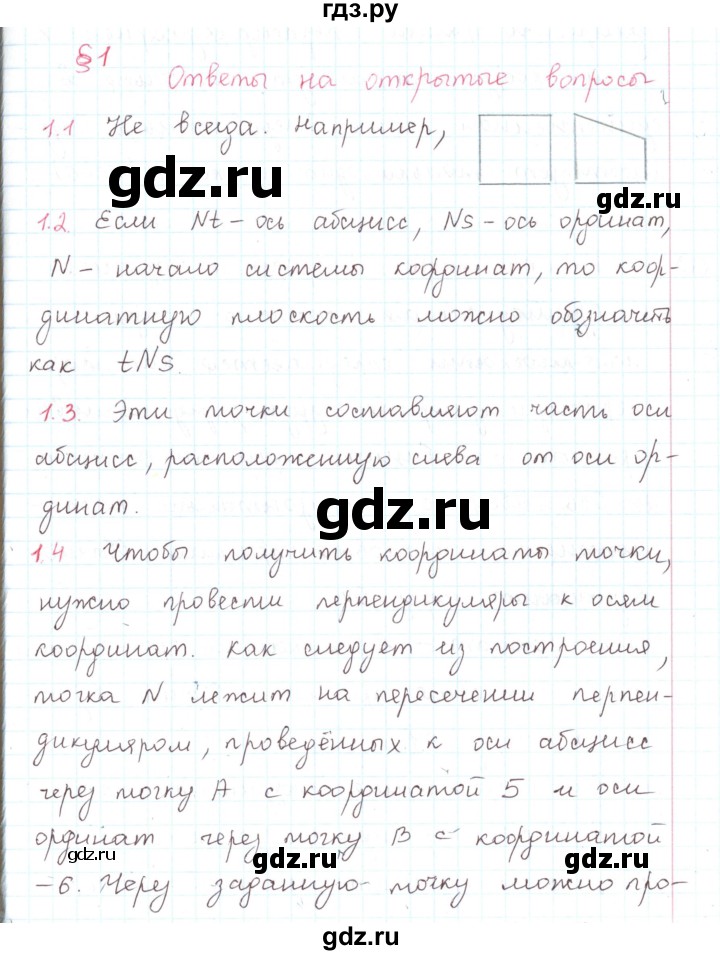 гдз.ру
§1
Ответы на открытые вопросы
1.1 Не всегда. Например,
gdz.ru
gdz.ru
1.2. Если Nt – ось абсцисс, Ns – ось ординат,
N – начало системы координат, то коор-
динатную плоскость можно обозначить
gdz.ru
как tNs.
1.3. Эти точки составляют часть оси
абсцисс, расположенную слева от оси ор-
gdz.ru
динат.
1.4 Чтобы получить координаты точки,
нужно провести перпендикуляры к осям
gdz.ru
gdz.ru
координат. Как следует из построения,
точка N лежит на пересечении перпен-
дикуляром, проведённых к оси абсцисс
через точку A с координатой 5 и оси
ординат через точку B с координатой
gdz.ru
gdz.ru
–6. Через заданную точку можно про-
gdz.ru